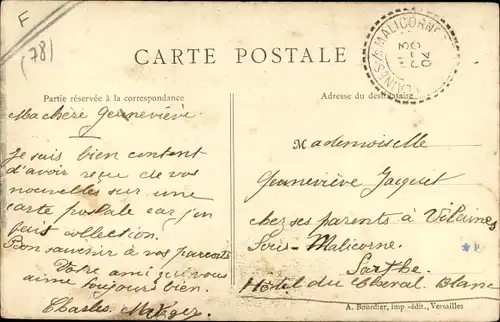 F
(78)
MALICORNE
3
04
CARTE POSTALE
Partie réservée à la correspondance
Ma chère Geneviève
Je suis bien content
d'avoir reçue de vos
nouvelles sur une
carte postale car j'en
fais collection.
Bon souvenir à vos parents
Votre ami qui vous
aime toujours bien.
Charles
Adresse du destinataire
Mademoiselle
Geneviève Jacquet
chez ses parents à Vilaines
Sous-Malicorne.
Sarthe
Hôtel du Cheval Blanc
A. Bourdier, imp-édit., Versailles